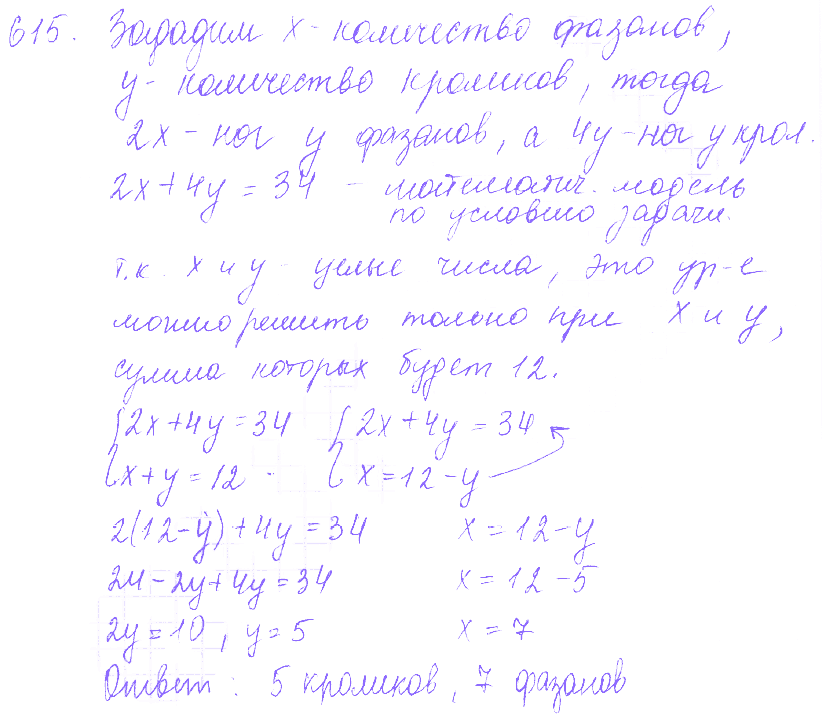 615. Зададим х - количество фазанов,
у - количество кроликов, тогда
2х - ног у фазанов, а 4у - ног у крол.
2х + 4у = 34 - математич. модель
по условию задачи.
т.к. х и у - целые числа, это ур-е
можно решить только при х и у,
сумма которых будет 12.
{2х + 4у = 34 {2х + 4у = 34
{х + у = 12 {х = 12 - у
2(12 - у) + 4у = 34 х = 12 - у
24 - 2у + 4у = 34 х = 12 - 5
2у = 10, у = 5 х = 7
Ответ: 5 кроликов, 7 фазанов